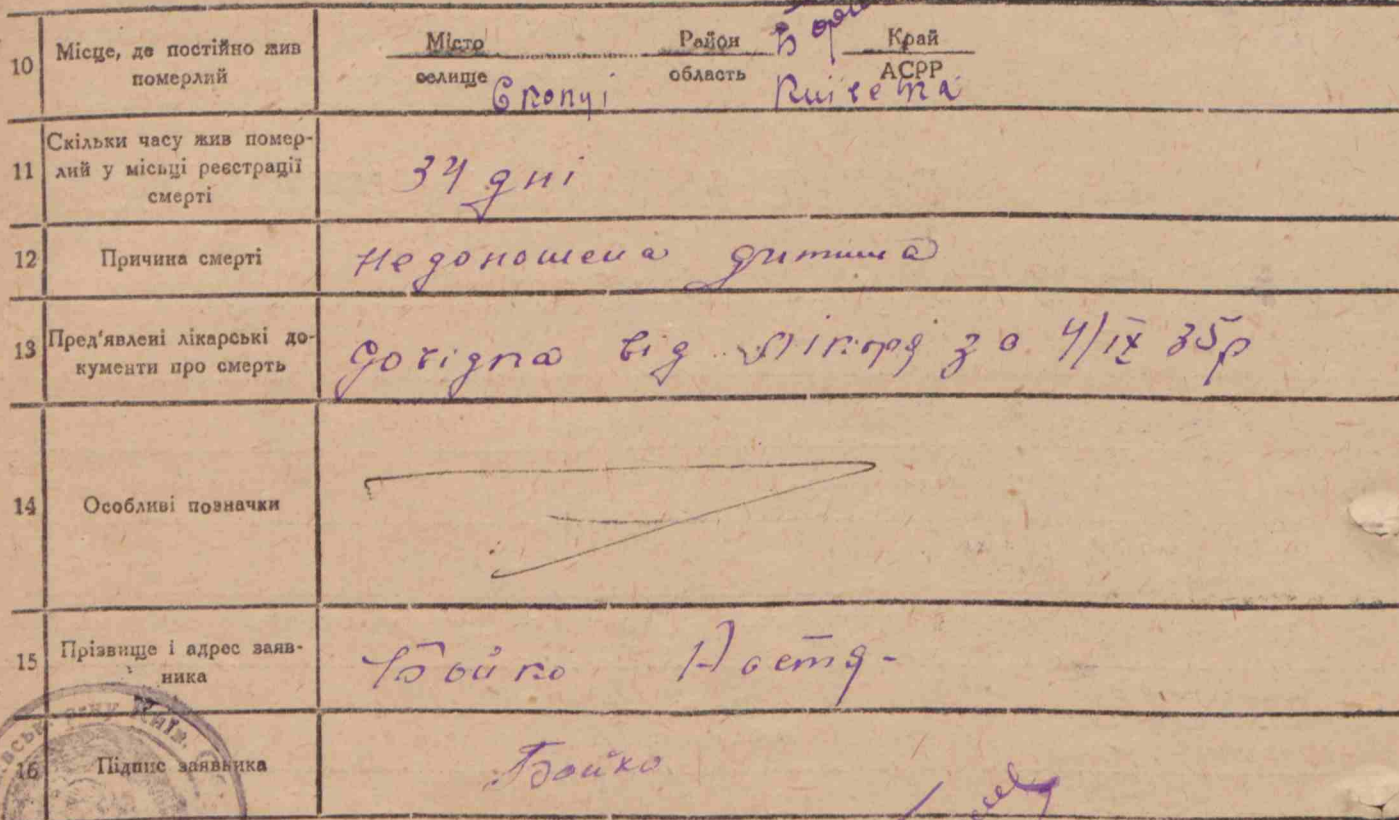 10 Місце, де постійно жив
померлий
Місто Район Край
селище Скопці область Київська АСРР
11 Скільки часу жив помер-
лий у місьці реєстрації
смерті
34 дні
12 Причина смерті Недоношена дитина
13 Пред'явлені лікарські до-
кументи про смерть
довідка від лікаря за 4/IX 35р
14 Особливі позначки
15 Прізвище і адрес заяв-
ника
Бойко Настя-
16 Підпис заявника Бойко